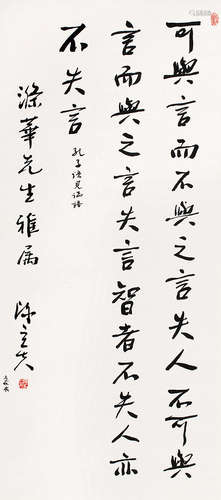 可與言而不與之言失人不可與
言而與之言失言智者不失人亦
不失言
孔子語見論語
滌華先生雅属
陳立夫